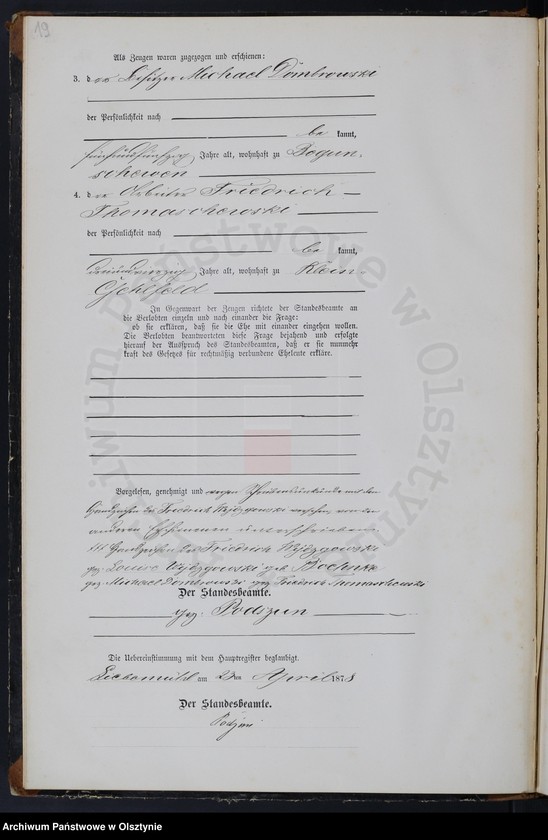 19
Als Zeugen waren zugezogen und erschienen:
3. der Besitzer Michael Dombrowski
der Persönlichkeit nach
be kannt,
fünfundfünfzig Jahre alt, wohnhaft zu Bogun-
schewen
4. der Arbeiter Friedrich
Thomaschewski
der Persönlichkeit nach
be kannt,
Jahre alt, wohnhaft zu Klein
Gehlfeld
In Gegenwart der Zeugen richtete der Standesbeamte an
die Verlobten einzeln und nach einander die Frage:
ob sie erklären, daß sie die Ehe mit einander eingehen wollen.
Die Verlobten beantworteten diese Frage bejahend und erfolgte
hierauf der Ausspruch des Standesbeamten, daß er sie nunmehr
kraft des Gesetzes für rechtmäßig verbundene Eheleute erkläre.
Vorgelesen, genehmigt und wegen Schreibensunkunde mit den
Handzeichen des Friedrich versehen, von den
anderen Erschienenen unterschrieben
††† Handzeichen des Friedrich
gez. Louise geb. Bochenek
gez. Michael Dombrowski gez. Friedrich Thomaschewski
Der Standesbeamte.
gez. Podszun
Die Uebereinstimmung mit dem Hauptregister beglaubigt.
Liebemühl am 23ten April 1878
Der Standesbeamte.
Podszun
Archiwum Państwowe w Olsztynie
Archiwum Państwowe w Olsztynie